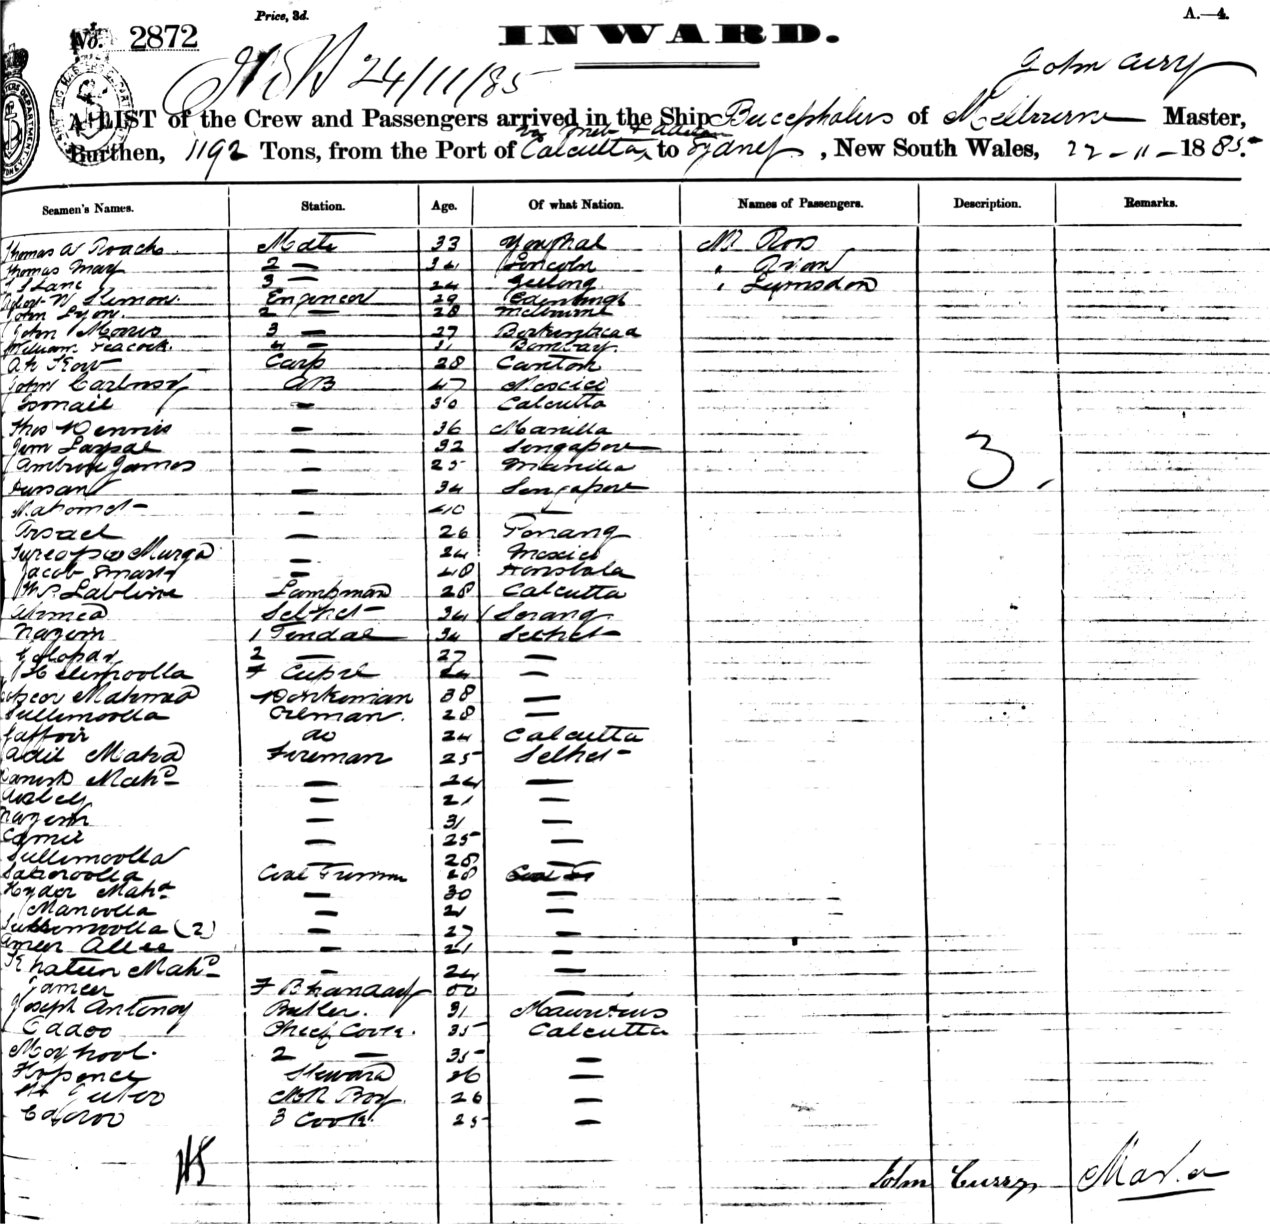 Price, 3d.
A.—4.
No. 2872
INWARD.
24/11/85
John Curry
A LIST of the Crew and Passengers arrived in the Ship Bucephalus of Melbourne Master,
Burthen, 1192 Tons, from the Port of Calcutta to Sydney, New South Wales, 22-11-1885.
Seamen's Names. Station. Age. Of what Nation. Names of Passengers. Description. Remarks.
Thomas W Roach Mate 33 Youghal Mr Ross
Thomas May 2 — 34 Lincoln "
Lane 3 — 24 Geelong " Lumsdon
Engineer 29 Edinburgh
John Lyon 2 — 28 Melbourne
John Morris 3 — 27 Birkenhead
William Peacock 4 — 31 Bombay
Ah Kow Carp 28 Canton
John AB 47 Mexico
Ismail — 30 Calcutta
Thos Dennis — 36 Manilla
Jim — 32 Singapore
Ambrose James — 25 Manilla
3
Hassan — 34 Singapore
Mahomet — 40 —
Israel — 26 Penang
Murga — 24 Mexico
Jacob Smart — 48
Lablive Lampman 28 Calcutta
Ahmed Selhet 34 / Serang
Nazem 1 Tendal 34 Selhet
2 — 27 —
F 24 —
Mahmad Donkeyman 38 —
Sullimoolla Oilman 28 —
Gaffoor do 24 Calcutta
Adil Mahd Fireman 25 Selhet
Mahd — 24 —
— 21 —
Nazem — 31 —
— 25 —
Sullimoolla 28 —
Coal Trimmer 28
Hyder Mahd — 30 —
Manoolla — 21 —
(2) — 27 —
Ameer Allee — 21 —
Mahd — 24 —
Jameer F Bhandary —
Joseph Antonoy Butler 31 Mauritius
Eddoo Chief Cook 35 Calcutta
2 — 35 —
Steward 26 —
Boy 26 —
3 Cook 25 —
45
John Curry Master